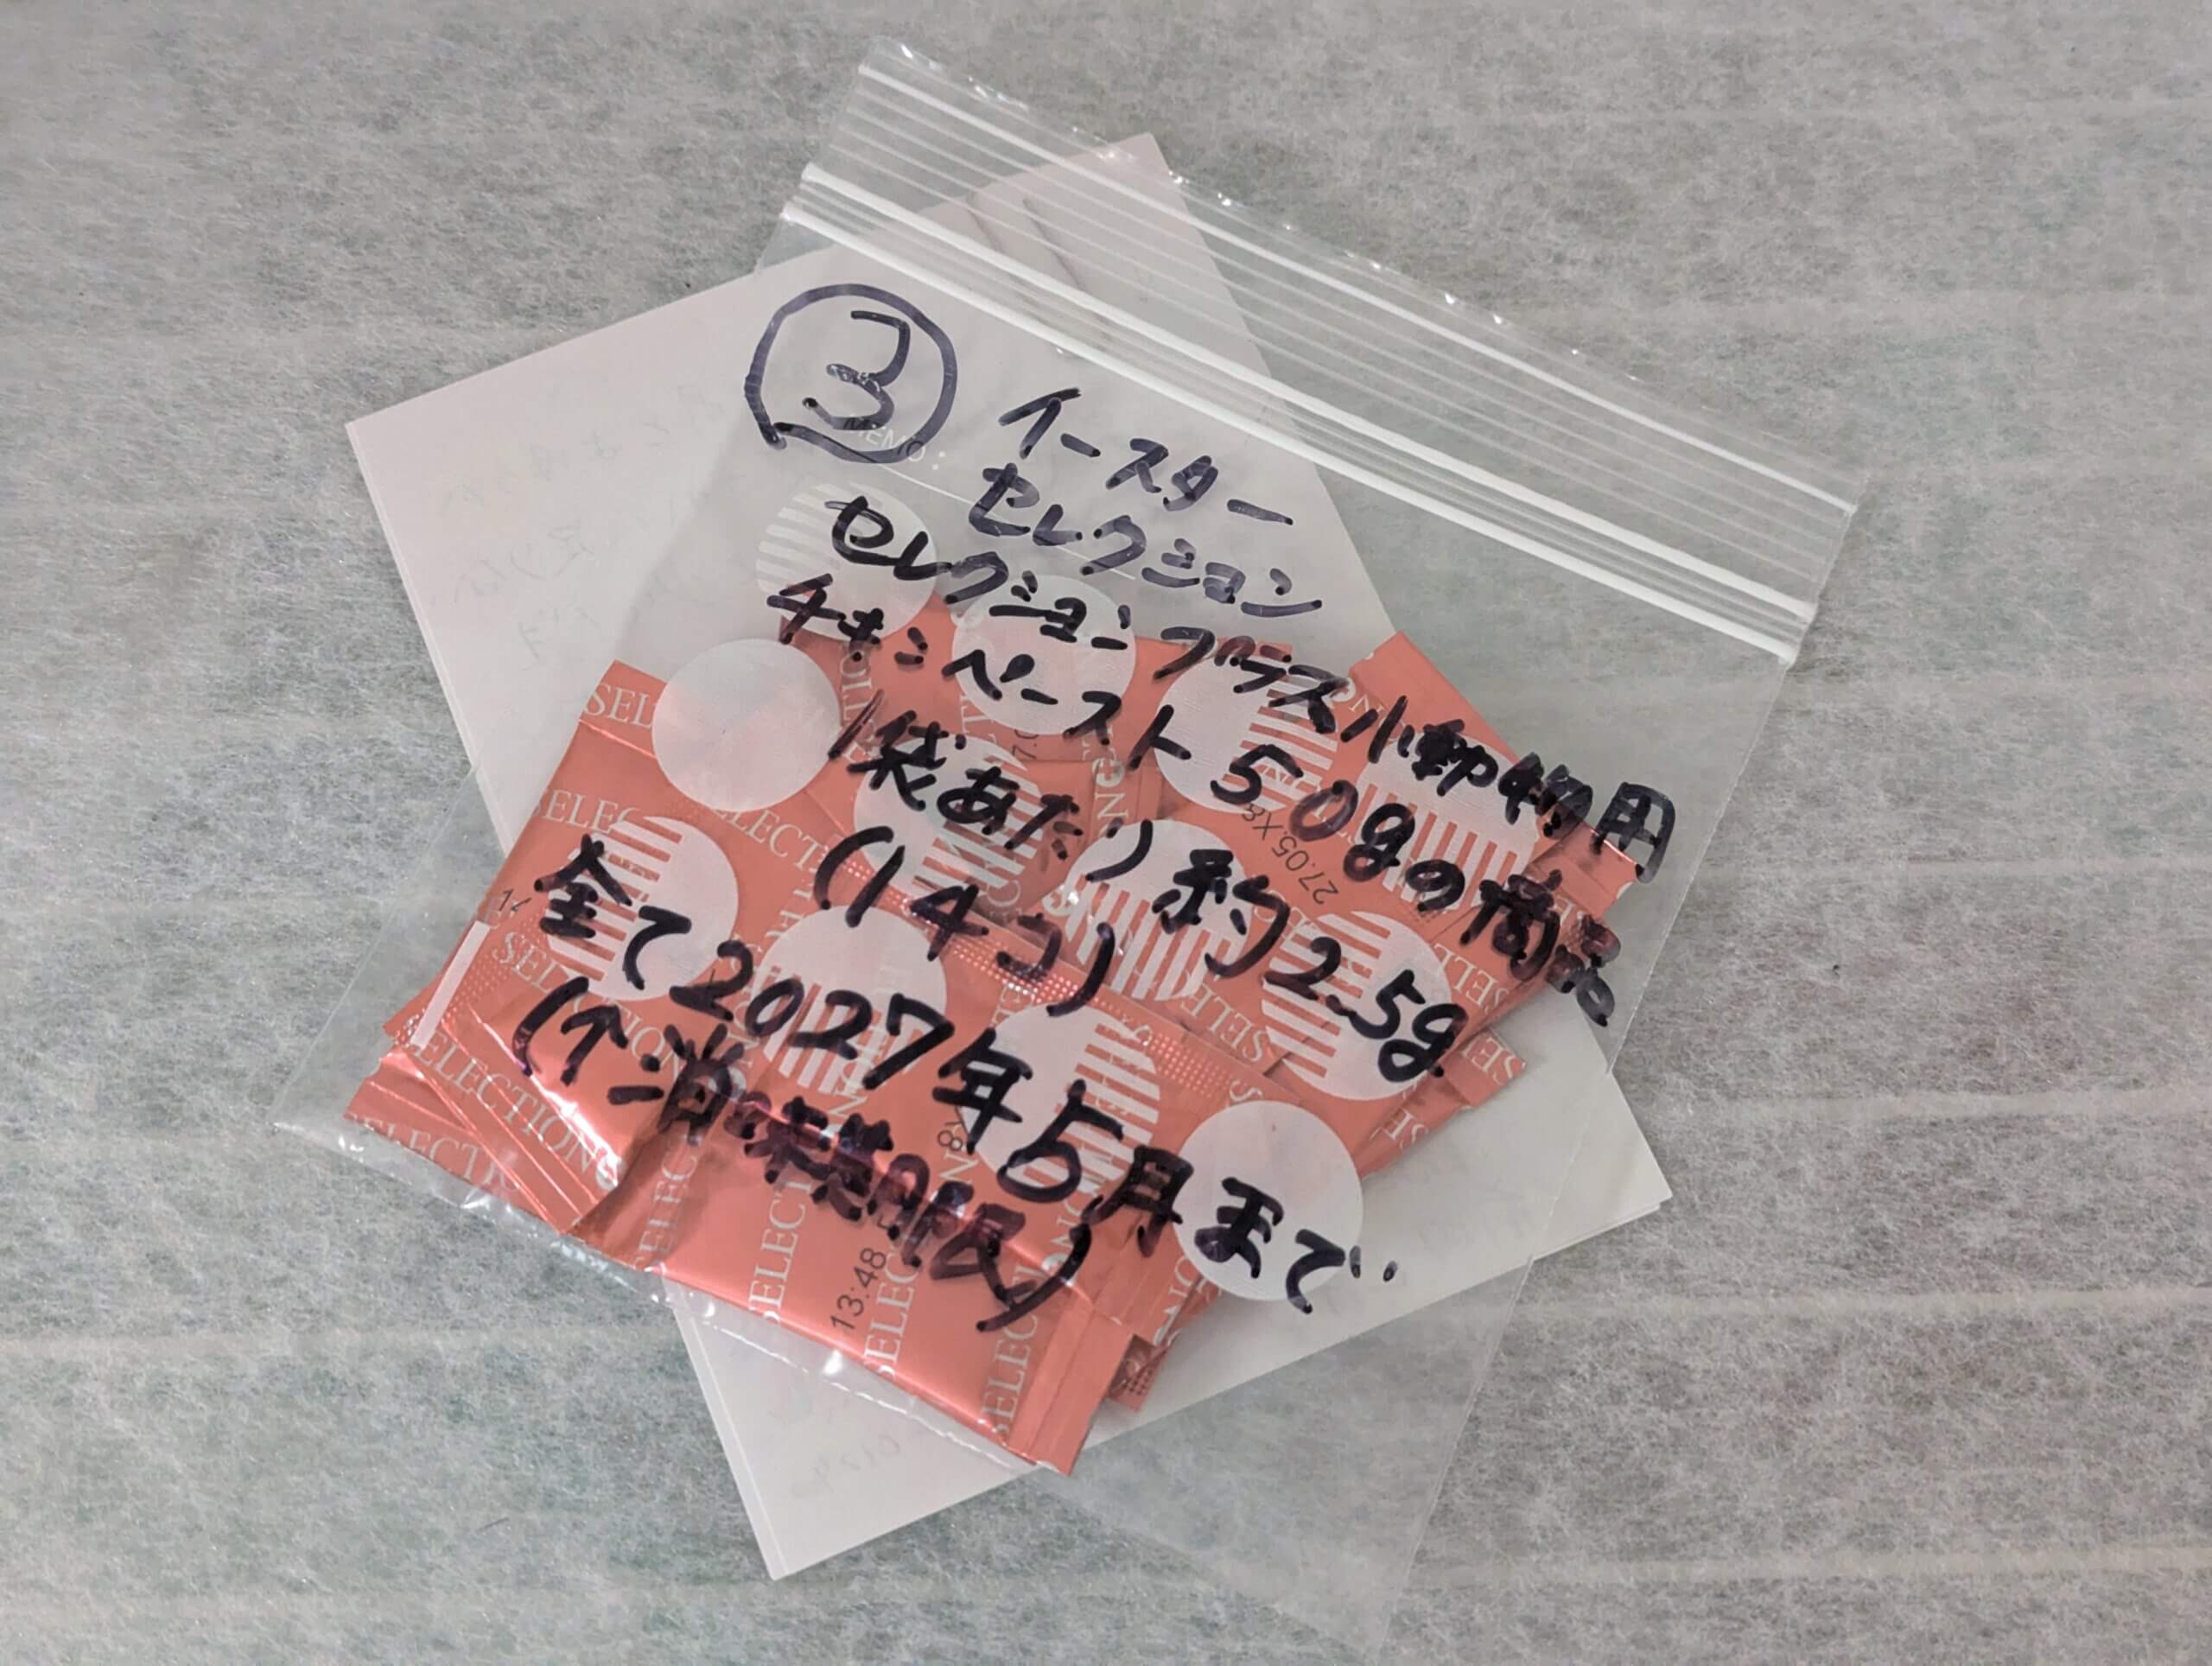 ③ イースター
セレクション
セレクションプラス小動物用
チキンペースト50gの商品
1袋あたり約2.5g
(14コ)
全て2027年5月まで
(↑賞味期限)
MEMO:
SELECTION
SELECTION
SELECTIONS
27.05.X8
13:48